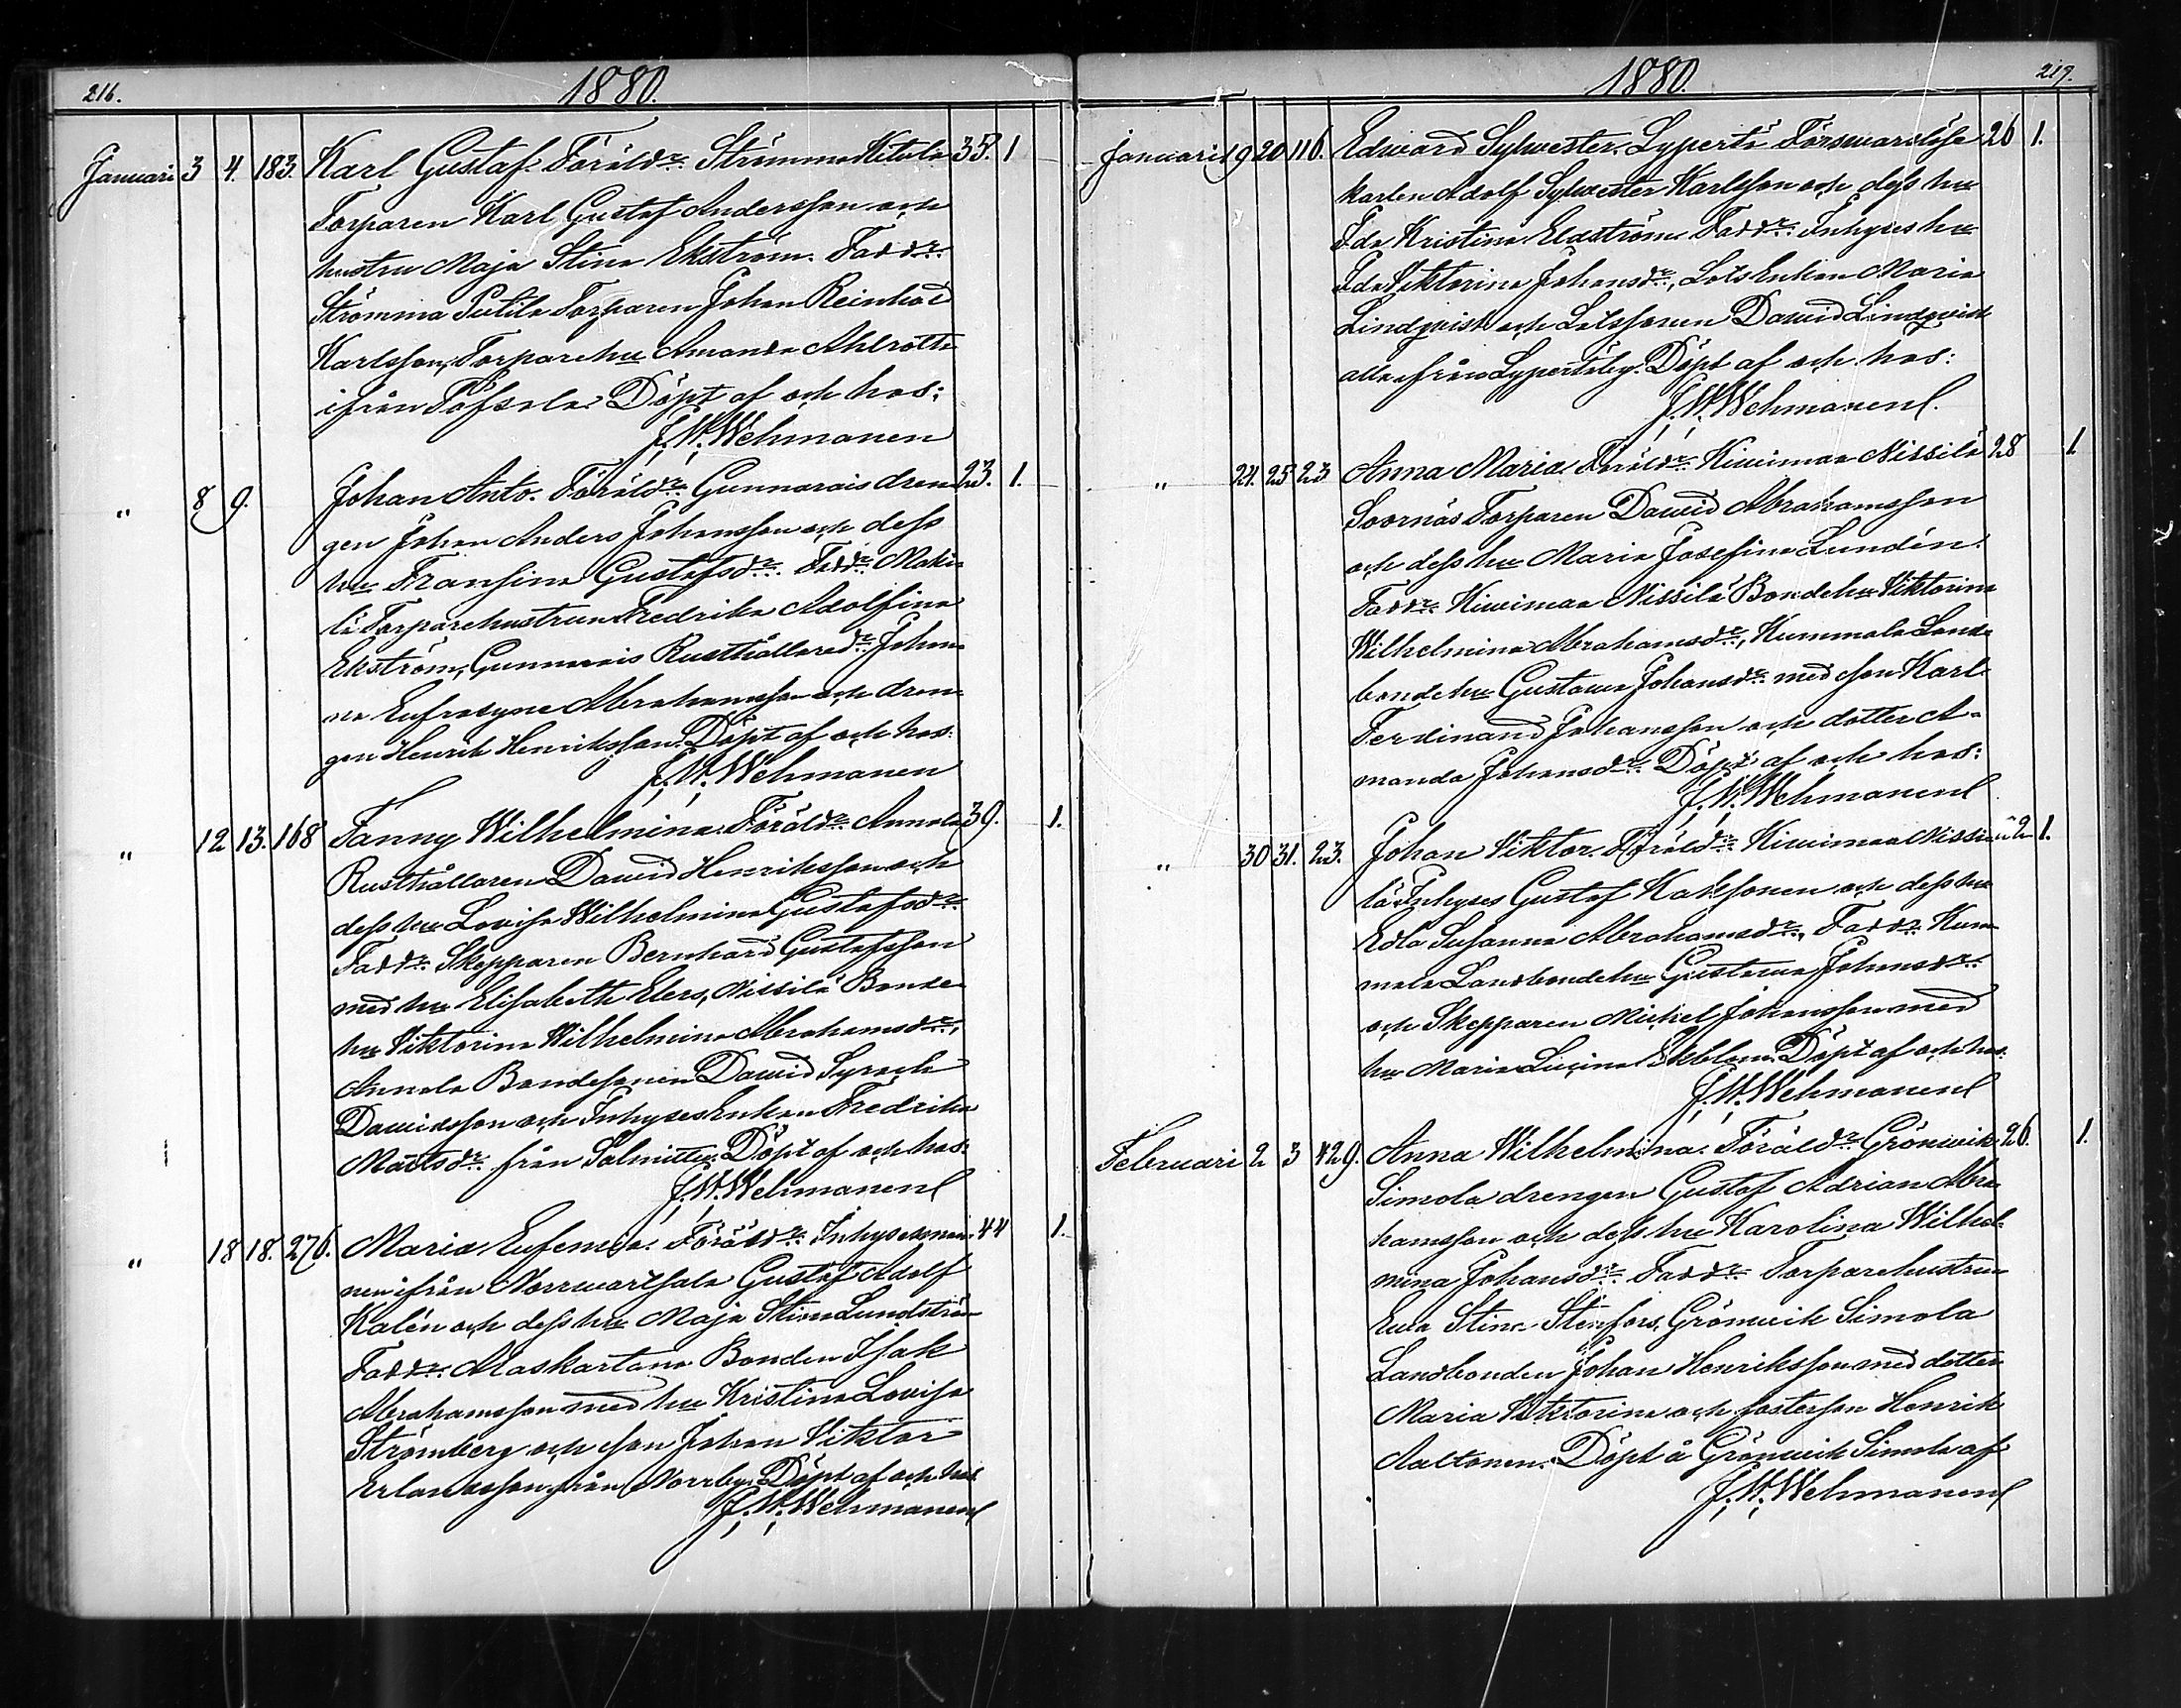 216.
1880.
Januari 3 4. 183. Karl Gustaf. Föräldr: Strömma Ketola 35. 1
Torparen Karl Gustaf Andersson och
hustru Maja Stina Ekström. Faddr:
Strömma Putila Torparen Johan Reinhold
Karlsson, Torparehu Amanda Ahlroth
ifrån Påfsala. Döpt af och hos:
J. W. Wehmanen
" 8 9. Johan Anto. Föräldr: Gunnarais dren- 23. 1.
gen Johan Anders Johansson och dess
hu Fransina Gustafsdr: Faddr: Maki-
lä Torparehustrun Fredrika Adolfina
Ekström, Gunnarais Rusthållaredr: Johan-
na Eufrosyne Abrahamsson och dren-
gen Henrik Henriksson. Döpt af och hos:
J. W. Wehmanen
" 12 13. 168 Fanny Wilhelmina. Föräldr: Annala 39. 1.
Rusthållaren Dawid Henriksson och
dess hu Lovisa Wilhelmina Gustafsdr:
Faddr: Skepparen Bernhard Gustafsson
med hu Elisabeth Elers, Nissilä Bonde-
hu Viktorina Wilhelmina Abrahamsdr:,
Annala Bondesonen Dawid Syrach
Dawidsson och Inhyses Enkan Fredrika
Mårtsdr: från Salmittu. Döpt af och hos:
J. W. Wehmanen
" 18 18. 276. Maria Eufemia. Föräldr: Inhysesman- 44 1.
nen ifrån Norrwartsala Gustaf Adolf
Kalén och dess hu Maja Stina Lundström
Faddr: Alaskartano Bonden Isak
Abrahamsson med hu Kristina Lovisa
Strömberg och son Johan Viktor
Erlandsson från Norrby. Döpt af och hos:
J. W. Wehmanen
1880.
217.
Januari 19 20 116. Edward Sylwester. Lypertö Försvarslöse 26 1.
karlen Adolf Sylwester Karlsson och dess hu
Ida Kristina Eldström. Faddr: Inhyses hu
Ida Viktorina Johansdr:, Lots Enkan Maria
Lindqvist och Lotssonen Dawid Lindqvist
alla från Lypertöby. Döpt af och hos:
J. W. Wehmanen.
" 24. 25 23 Anna Maria. Föräldr: Kiwimaa Nissilä 28 1
Soornäs Torparen Dawid Abrahamsson
och dess hu Maria Josefina Lundén.
Faddr: Kiwimaa Nissilä Bondehu Viktorina
Wilhelmina Abrahamsdr:, Kummala Land-
bondehu Gustawa Johansdr: med son Karl
Ferdinand Johansson och dotter A-
manda Johansdr: Döpt af och hos:
J. W. Wehmanen
" 30 31. 23. Johan Viktor. Föräldr: Kiwimaa Nissi- 22 1.
lä Inhyses Gustaf Kaksonen och dess hu
Edla Susanna Abrahamsdr:, Faddr: Kum-
mala Landbondehu Gustawa Johansdr:
och Skepparen Mickel Johansson med
hu Maria Lucina Ekblom. Döpt af och hos:
J. W. Wehmanen
Februari 2 3 429. Anna Wilhelmina. Föräldr: Grönwik 26. 1.
Simola drengen Gustaf Adrian Abra-
hamsson och dess hu Karolina Wilhel-
mina Johansdr: Faddr: Torparehustrun
Ewa Stina Stenfors, Grönwik Simola
Landbonden Johan Henriksson med dotter
Maria Viktorina och fosterson Henrik
Aaltonen. Döpt å Grönwik Simola af
J. W. Wehmanen